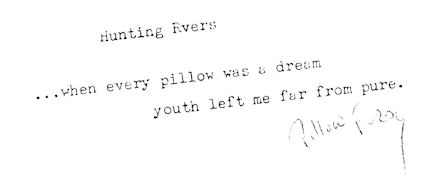 Hunting Rvers
...when every pillow was a dream
youth left me far from pure.